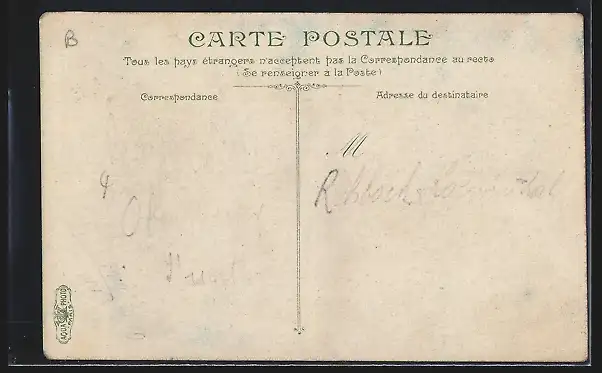 B
CARTE POSTALE
Tous les pays étrangers n'acceptent pas la Correspondance au recto
(Se renseigner à la Poste)
Correspondance
Adresse du destinataire
M
AQUA PHOTO
PARIS